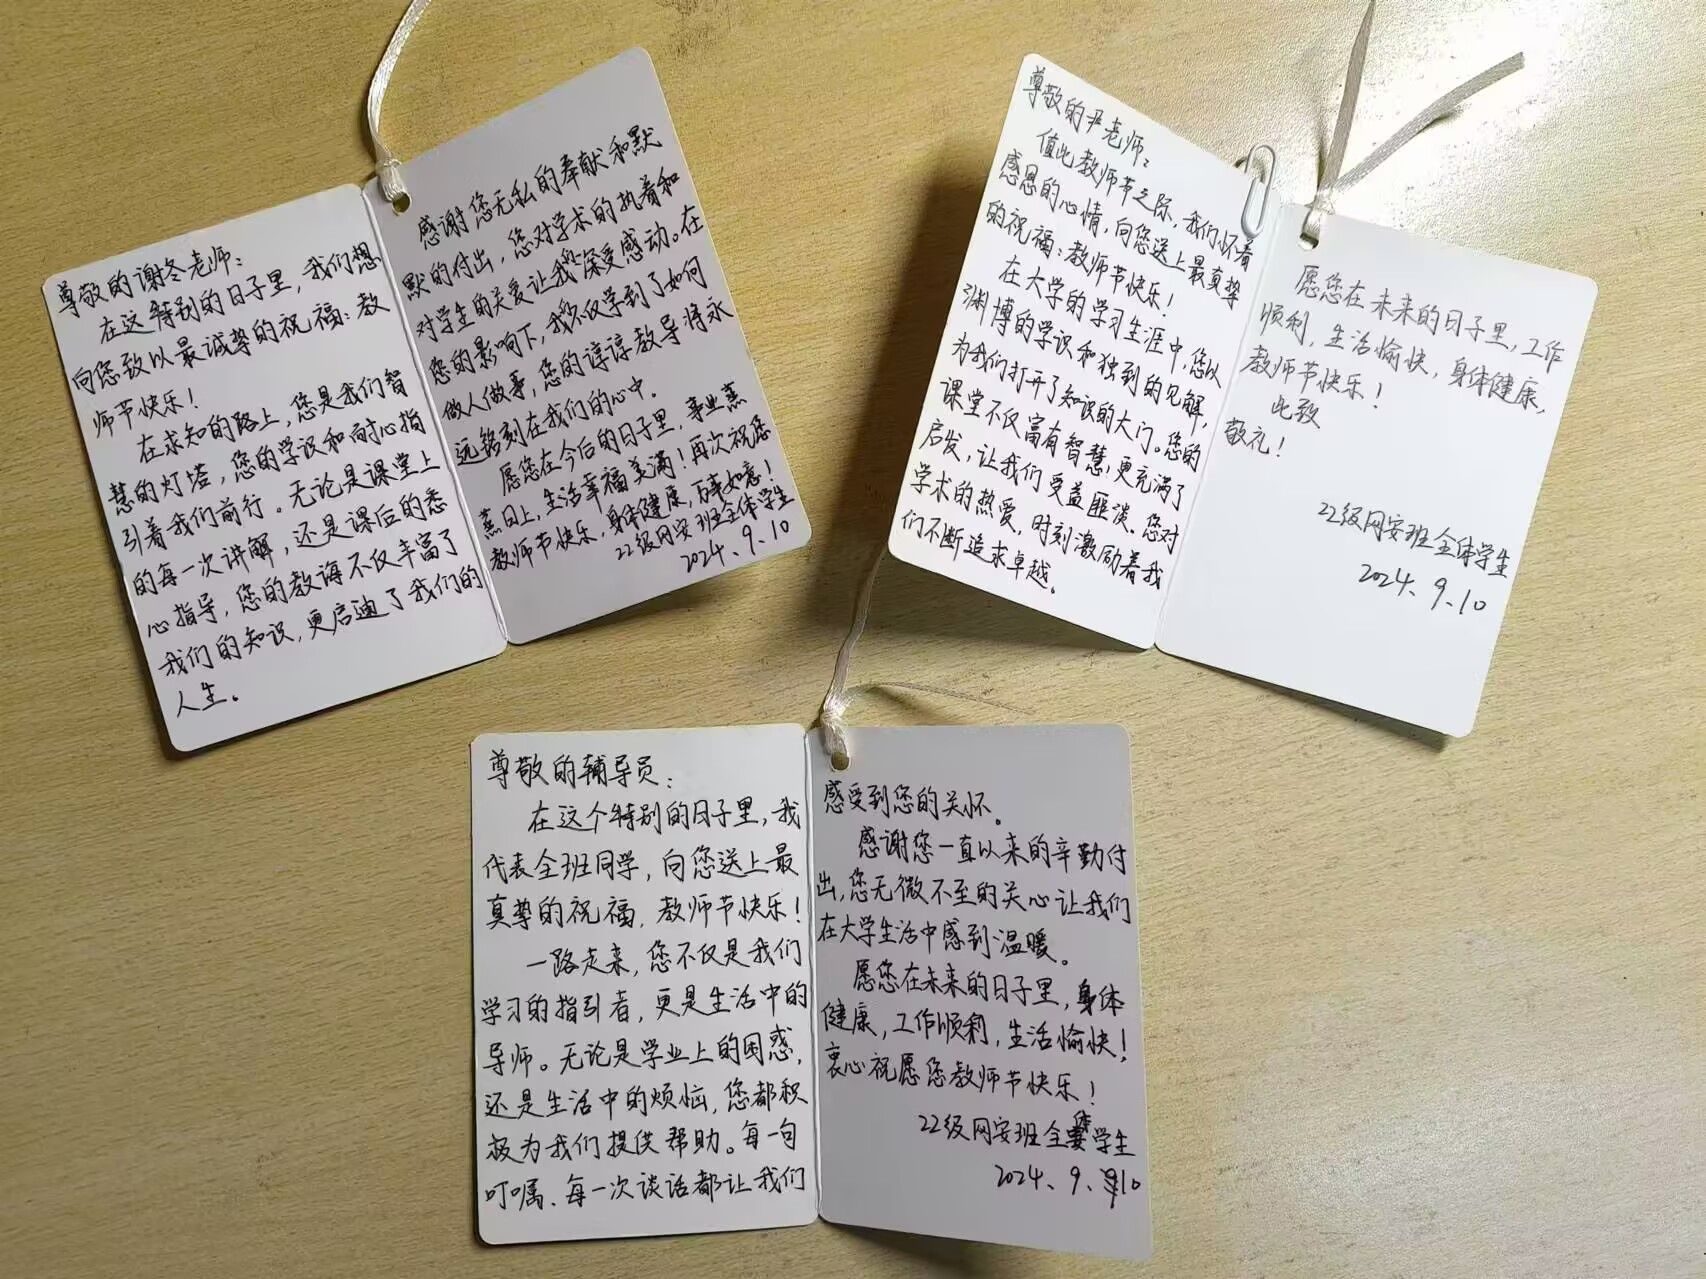 尊敬的谢冬老师：
在这特别的日子里，我们想
向您致以最诚挚的祝福：教
师节快乐！
在求知的路上，您是我们智
慧的灯塔，您的学识和耐心指
引着我们前行。无论是课堂上
的每一次讲解，还是课后的悉
心指导，您的教诲不仅丰富了
我们的知识，更启迪了我们的
人生。
感谢您无私的奉献和默
默的付出，您对学术的执着和
对学生的关爱让我深受感动。在
您的影响下，我不仅学到了如何
做人做事，您的谆谆教导将永
远铭刻在我们的心中。
愿您在今后的日子里，事业蒸
蒸日上，生活幸福美满！再次祝您
教师节快乐，身体健康，万事如意！
22级网安班全体学生
2024、9、10
尊敬的尹老师：
值此教师节之际，我们怀着
感恩的心情，向您送上最真挚
的祝福：教师节快乐！
在大学的学习生涯中，您以
渊博的学识和独到的见解，
为我们打开了知识的大门。您的
课堂不仅富有智慧，更充满了
启发，让我们受益匪淡。您对
学术的热爱，时刻激励着我
们不断追求卓越。
愿您在未来的日子里，工作
顺利，生活愉快，身体健康，
教师节快乐！
此致
敬礼！
22级网安班全体学生
2024、9、10
尊敬的辅导员：
在这个特别的日子里，我
代表全班同学，向您送上最
真挚的祝福，教师节快乐！
一路走来，您不仅是我们
学习的指引者，更是生活中的
导师。无论是学业上的困惑，
还是生活中的烦恼，您都积
极为我们提供帮助。每一句
叮嘱、每一次谈话都让我们
感受到您的关怀。
感谢您一直以来的辛勤付
出，您无微不至的关心让我们
在大学生活中感到温暖。
愿您在未来的日子里，身体
健康，工作顺利，生活愉快！
衷心祝愿您教师节快乐！
22级网安班全体学生
2024、9、10